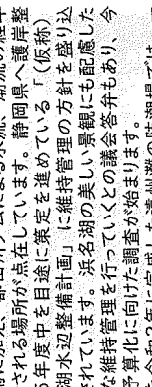 される場所が点在しています。静岡県へ護岸整
年度中を目途に策定を進めている「(仮称)
湖水辺整備計画」に維持管理の方針を盛り込
されています。浜名湖の美しい景観にも配慮した
な維持管理を行っていくとの議会答弁もあり、今
予算化に向けた調査が始まります。
令和2年に完成した遠州灘の防潮堤では、